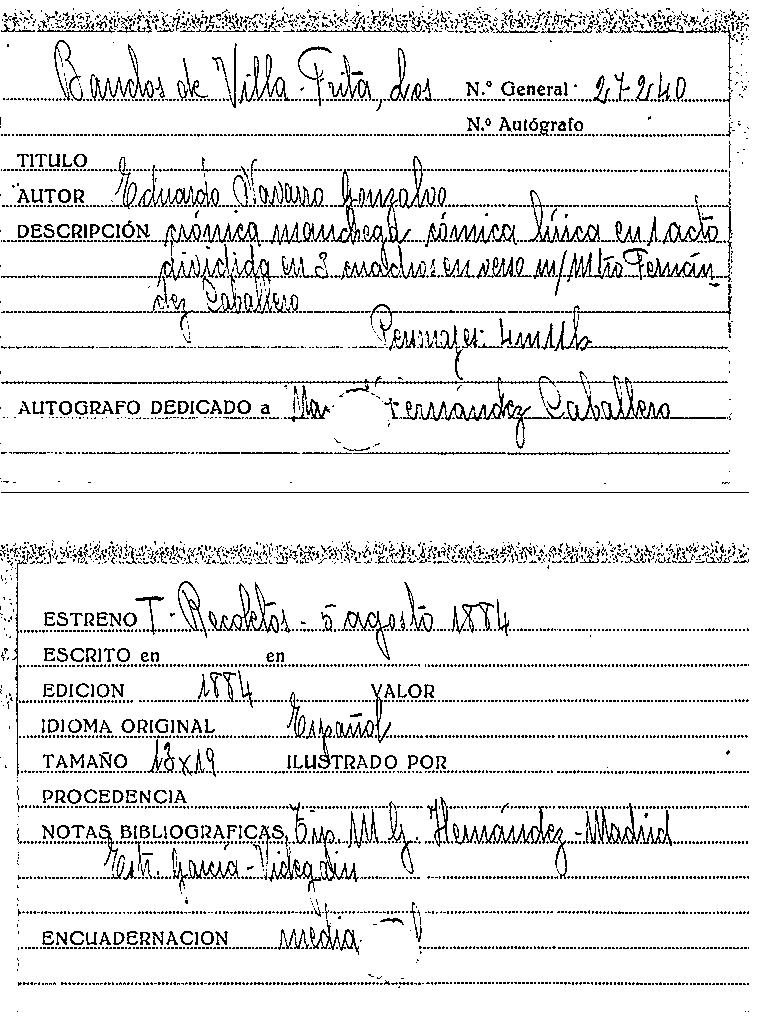 Bandos de Villa-Frita, Los N.º General 27-240
N.º Autógrafo
TITULO
AUTOR Eduardo Navarro Gonzalvo
DESCRIPCIÓN crónica manchega cómica lírica en 1 acto
dividida en 3 cuadros en verso m/ Mtro Fernán-
dez Caballero
Personajes: 4m11h
AUTOGRAFO DEDICADO a Fernández Caballero
ESTRENO T. Recoletos - 5 agosto 1884
ESCRITO en en
EDICION 1884 VALOR
IDIOMA ORIGINAL Español
TAMAÑO 13x19 ILUSTRADO POR
PROCEDENCIA
NOTAS BIBLIOGRAFICAS Tip. M G. Hernández-Madrid
Estr. García-Videgain
ENCUADERNACION media